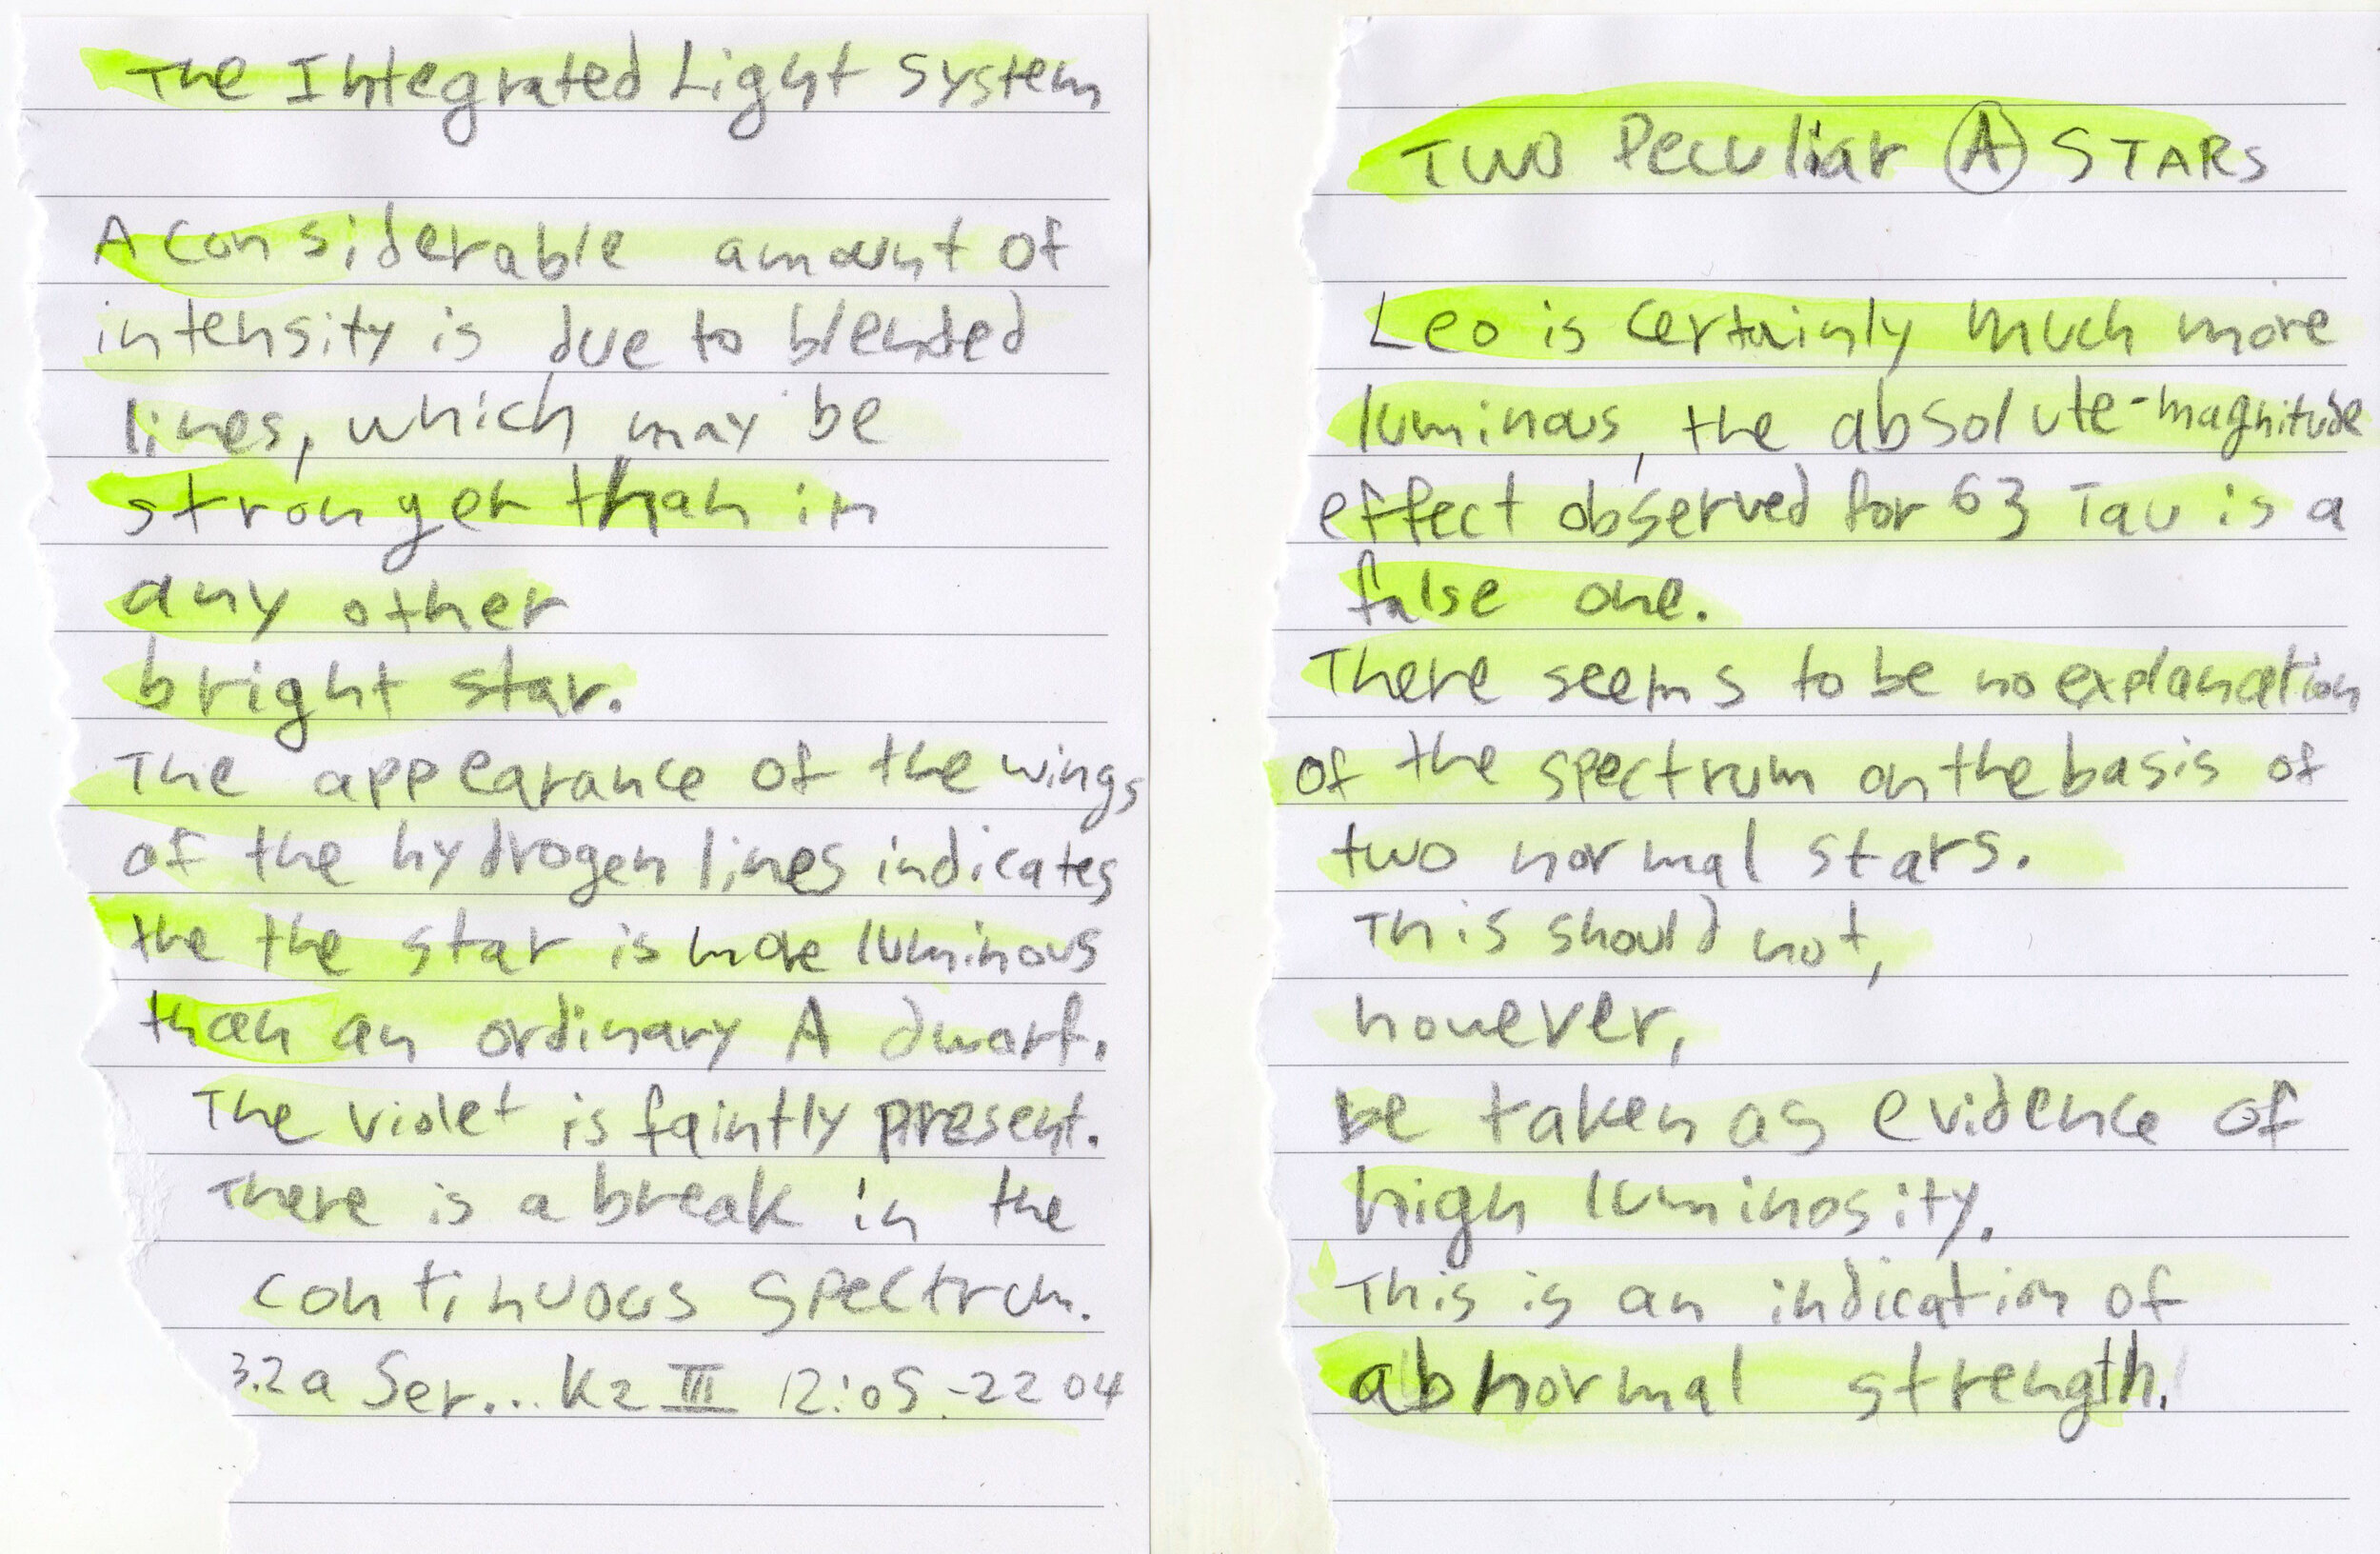 The Integrated Light System
A considerable amount of
intensity is due to blended
lines, which may be
stronger than in
any other
bright star.
The appearance of the wings
of the hydrogen lines indicates
the the star is more luminous
than an ordinary A dwarf.
The violet is faintly present.
There is a break in the
continuous spectrum.
3.2 a Ser... K2 III 12:05 -22 04
TWO Peculiar A STARS
Leo is certainly much more
luminous, the absolute-magnitude
effect observed for 63 Tau is a
false one.
There seems to be no explanation
of the spectrum on the basis of
two normal stars.
This should not,
however,
be taken as evidence of
high luminosity.
This is an indication of
abnormal strength.